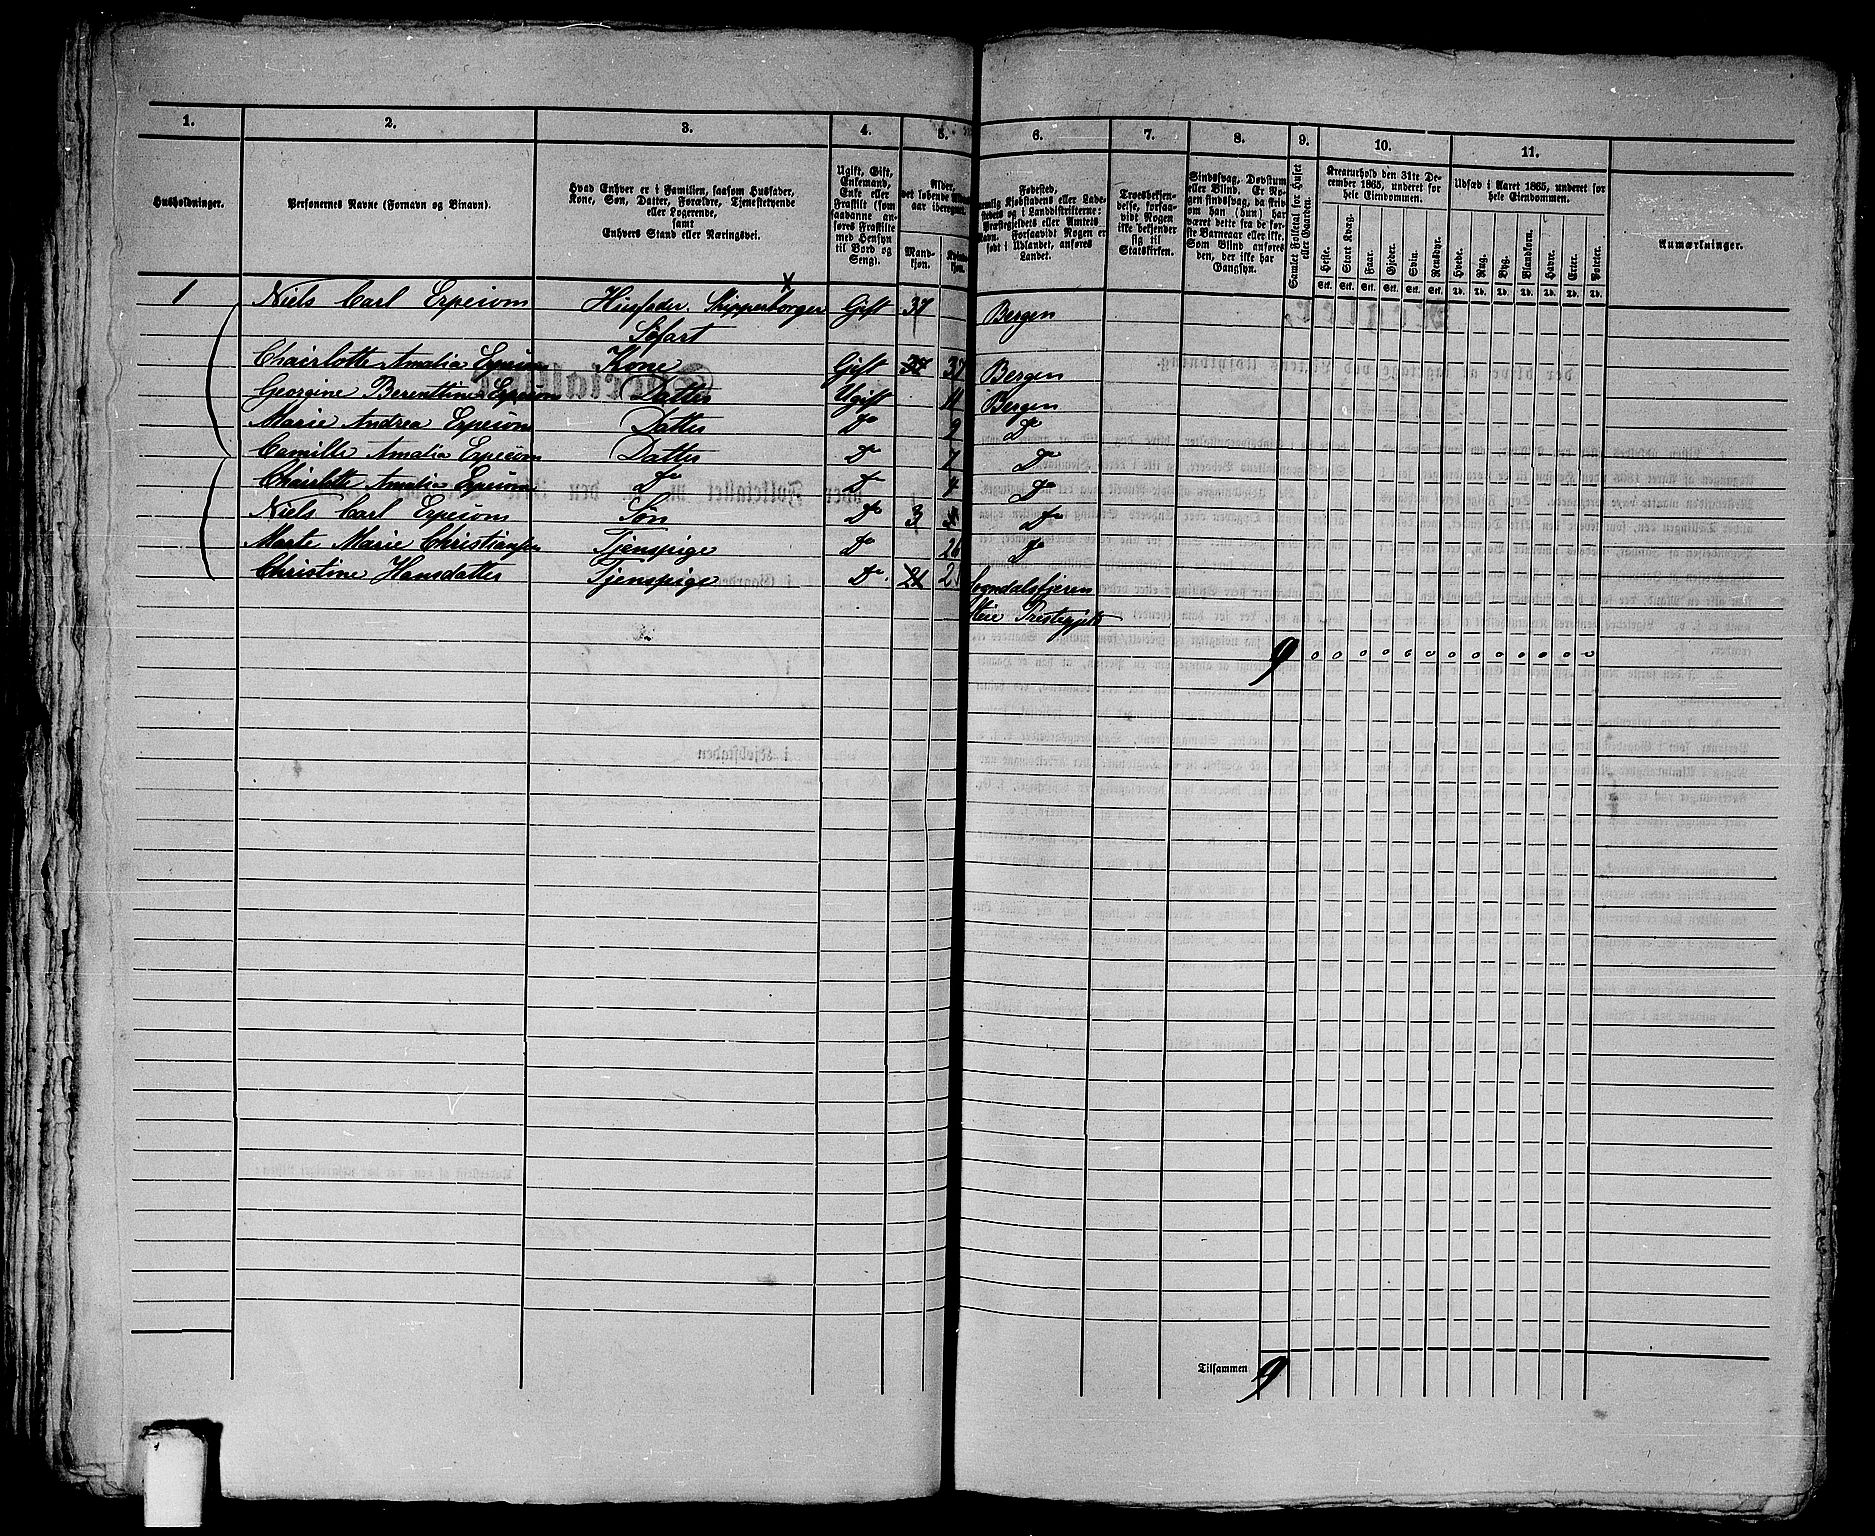 1. 2. 3. 4. 5. 6. 7. 8. 9. 10. 11.
Husholdninger.
Personernes Navne (Fornavn og Binavn).
Hvad Enhver er i Familien, saasom Husfader,
Kone, Søn, Datter, Forældre, Tjenestetyende
eller Logerende,
samt
Enhvers Stand eller Næringsvei.
Ugift, Gift,
Enkemand,
Enke eller
Fraskilt (som
saadanne an-
føres Fraskilte
med Hensyn
til Bord og
Seng).
Alder,
det løbende
aar iberegnet.
Mand-
kjøn.
Kvinde-
kjøn.
Fødested,
nemlig Kjøbstadens eller Lade-
stedets og i Landdistrikterne:
Præstegjeldets eller Amtets
Navn. Forsaavidt Nogen er
født i Udlandet, anføres
Landet.
Troesbekjen-
delse, forsaa-
vidt Nogen
ikke bekjender
sig til
Statskirken.
Sindssvag, Døvstum
eller Blind. Er No-
gen sindssvag, da skrives
om han (hun) har
været dette fra de før-
ste Barneaar eller ikke.
Som Blind anføres
den, der ikke har
Gangsyn.
Samlet Folketal for Huset
eller Gaarden.
Kreaturhold den 31te De-
cember 1865, underet for
hele Eiendommen.
Heste. Stort Kvæg. Faar. Gjeder. Svin. Rensdyr.
Stk. Stk. Stk. Stk. Stk. Stk.
Udsæd i Aaret 1865, underet for
hele Eiendommen.
Hvede. Rug. Byg. Blandkorn. Havre. Erter. Poteter.
Td. Td. Td. Td. Td. Td. Td.
Anmærkninger.
1 Niels Carl Erpecom Husfader. Skipperborger Gift 37 Bergen
Søfart
Chairlotte Amalia Erpecom Kone Gift 37 Bergen
Georgine Berentine Erpecom Datter Ugift 11 Bergen
Marie Andrea Erpecom Datter Do 9 Do
Camille Amalia Erpecom Datter Do 7 Do
Chairlotte Amalia Erpecom Do Do 4 Do
Niels Carl Erpecom Søn Do 3 Do
Marte Marie Christiansen Tjenspige Do 26 Do
Christine Hansdatter Tjenspige Do. 21 21 Sogndalsfjeren
Prestegjeld
9 0 0 0 0 0 0 0 0 0 0 0 0 0
Tilsammen 9